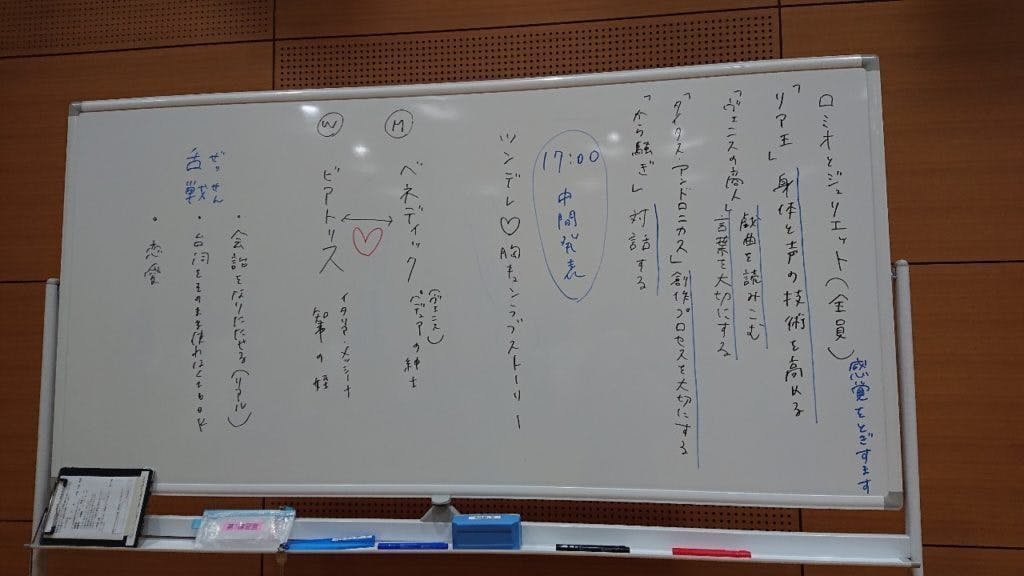 ロミオとジュリエット(全員)
感覚をとぎすます
「リア王」身体と声の技術を高める
「ヴェニスの商人」言葉を大切にする
戯曲を読みこむ
「タイタス・アンドロニカス」創作プロセスを大切にする
「から騒ぎ」対話する
17:00
中間発表
ツンデレ♡胸キュンラブストーリー
M
ベネディック
(ヴェニス)
パデュアの紳士
W
ビアトリス
イタリア・メッシーナ
の姪
ぜっせん
舌戦
・会話をなりたたせる(リアル)
・台詞をそのまま使わなくてもOK
・恋愛